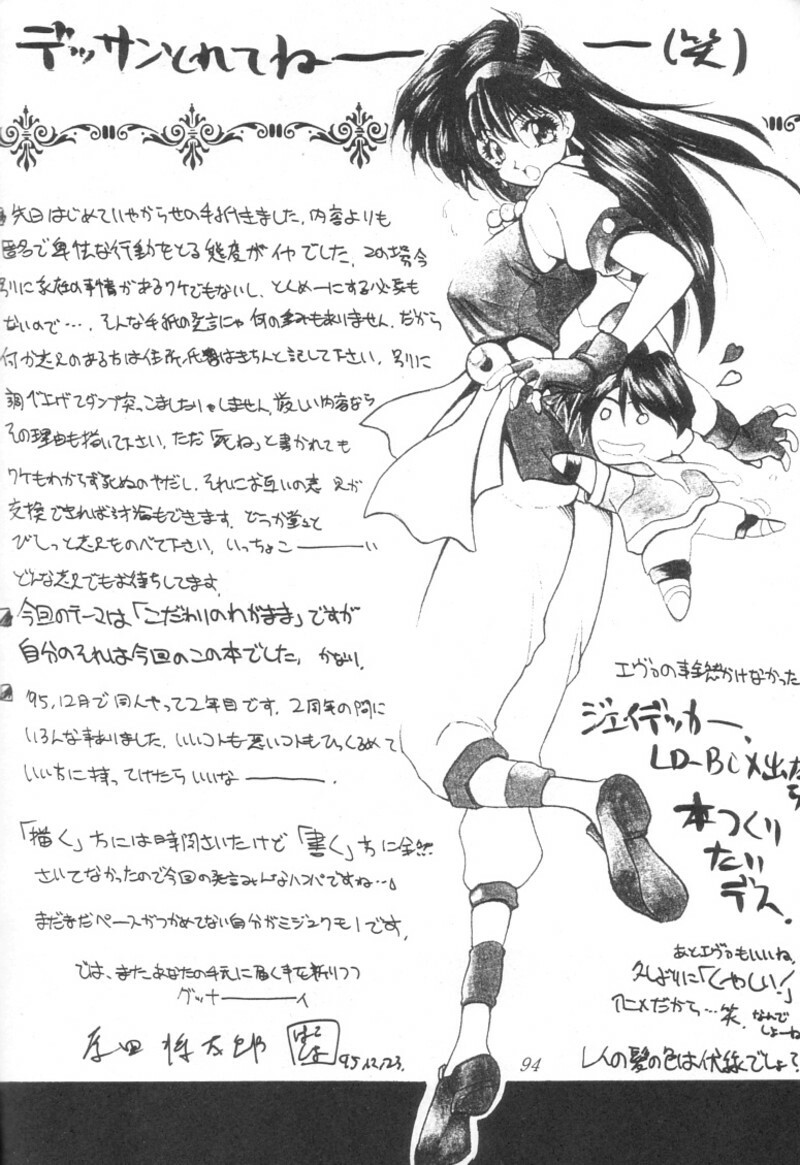 デッサンとれてねーー(笑)
先日はじめていやがらせの手紙きました。内容よりも
匿名で卑怯な行動をとる態度がイヤでした。この場合
別に家庭の事情があるワケでもないし、とくめーにする必要も
ないので…。そんな手紙の発言にゃ何の重みもありません。だから
何か意見のある方は住所、氏名はきちんと記して下さい。別に
調べ上げてダンプ突っこましたりゃしません。厳しい内容なら
その理由も描いて下さい。ただ「死ね」と書かれても
ワケもわからず死ぬのやだし、それにお互いの意見が
交換できれば対治もできます。どうか堂々と
びしっと意見をのべて下さい。いっちょこーーい
どんな意見でもお待ちしてます。
今回のテーマは「こだわりのわがまま」ですが
自分のそれは今回のこの本でした。かなり。
95,12月で同人やって2年目です。2周年の間に
いろんな事ありました。いいコトも悪いコトもひっくるめて
いい方に持ってけたらいいなーー。
「描く」方には時間さいたけど「書く」方に全然
さいてなかったので今回の発言みんなハンパですね…。
まだまだペースがつかめてない自分がミジュクモノです。
では、またあなたの手元に届く事を祈りつつ
グッナーーイ
95,12,23.
94
エヴァの事全然かけなかった
ジェイデッカー、
LD-BOX出たら
本つくり
たい
デス。
あとエヴァもいいね。
久しぶりに「くやしい!」
アニメだから…笑。なんで
しょーね
レイの髪の色は伏線でしょ?